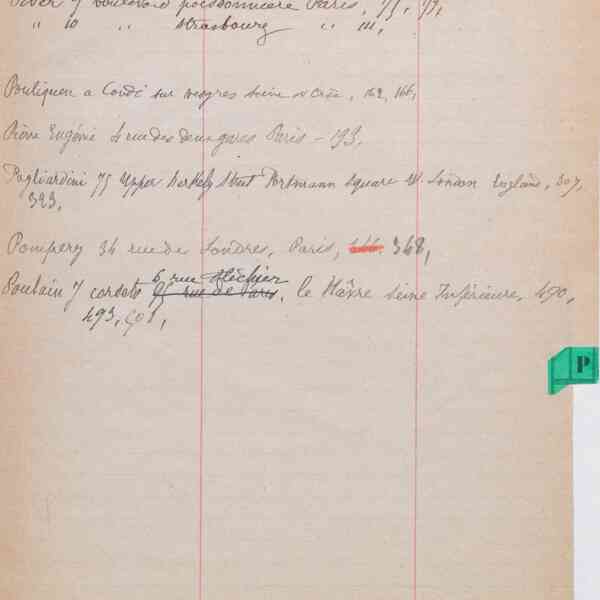 7 boulevard poissonnière Paris, 75, 93,
" 10 " Strasbourg " 111,
Poutiquen a Condé sur vesgres Seine et Oise, 162, 166,
Pione Eugénie 4 rue des deux gares Paris - 193,
Pagliardini 75 Upper Berkely Street Portmann Square W. London England, 307,
323,
Pompery 34 rue de Londres, Paris, 368,
6 rue Fléchier
Poulain 7 cordets rue de Paris, le Hâvre Seine Inférieure, 490,
493, 501,
P